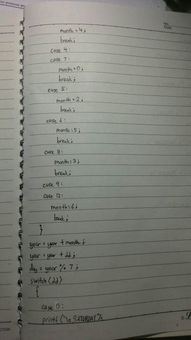 month = 4;
break;
case 4:
case 7:
month = 0;
break;
case 5:
month = 2;
break;
case 6:
month = 5;
break;
case 8:
month = 3;
break;
case 9:
case 12:
month = 6;
break;
}
year = year + month;
year = year + dd;
day = year % 7;
switch (dd)
{
case 0:
printf ("\n SATURDAY");